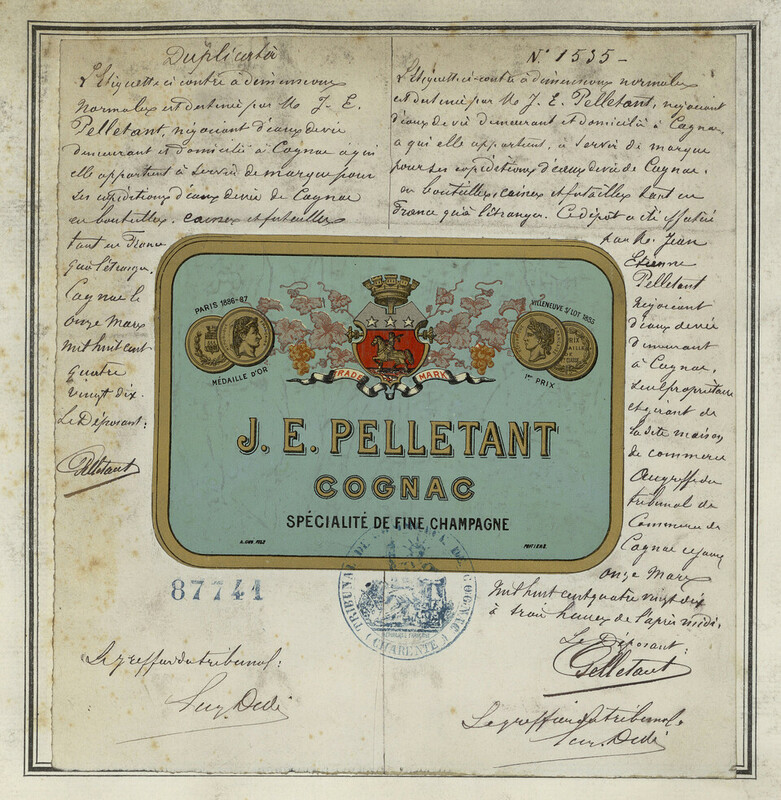 Duplicata
L'Etiquette ci contre à dimensions
normales est destinée par Mr J. E.
Pelletant, négociant d'eaux de vie
demeurant et domicilié à Cognac à qui
elle appartient à servir de marque pour
ses expéditions d'eaux de vie de Cognac
en bouteilles, caisses et futailles
tant en France
qu'à l'étranger.
Cognac le
onze Mars
mil huit cent
quatre
vingt dix.
Le Déposant:
Pelletant
N° 1535
L'Etiquette ci-contre à dimensions normales
est destinée par Mr J. E. Pelletant, négociant
d'eaux de vie demeurant et domicilié à Cognac,
à qui elle appartient, à servir de marque
pour ses expéditions d'eaux de vie de Cognac,
en bouteilles, caisses et futailles tant en
France qu'à l'étranger. Ce dépôt a été effectué
par Mr. Jean
Etienne
Pelletant
négociant
d'eaux de vie
demeurant
à Cognac,
seul propriétaire
et gérant de
la dite maison
de commerce
au greffe du
tribunal de
Commerce de
Cognac ce jour
onze Mars
mil huit cent quatre vingt dix
à trois heures de l'après midi.
Le Déposant:
Pelletant
PARIS 1886-87
MÉDAILLE D'OR
VILLENEUVE S/ LOT
1ER PRIX
TRADE MARK
J. E. PELLETANT
COGNAC
SPÉCIALITÉ DE FINE CHAMPAGNE
POITIERS
87741
TRIBUNAL DE COMMERCE DE COGNAC
(CHARENTE)
Le greffier du tribunal:
Le greffier du tribunal: